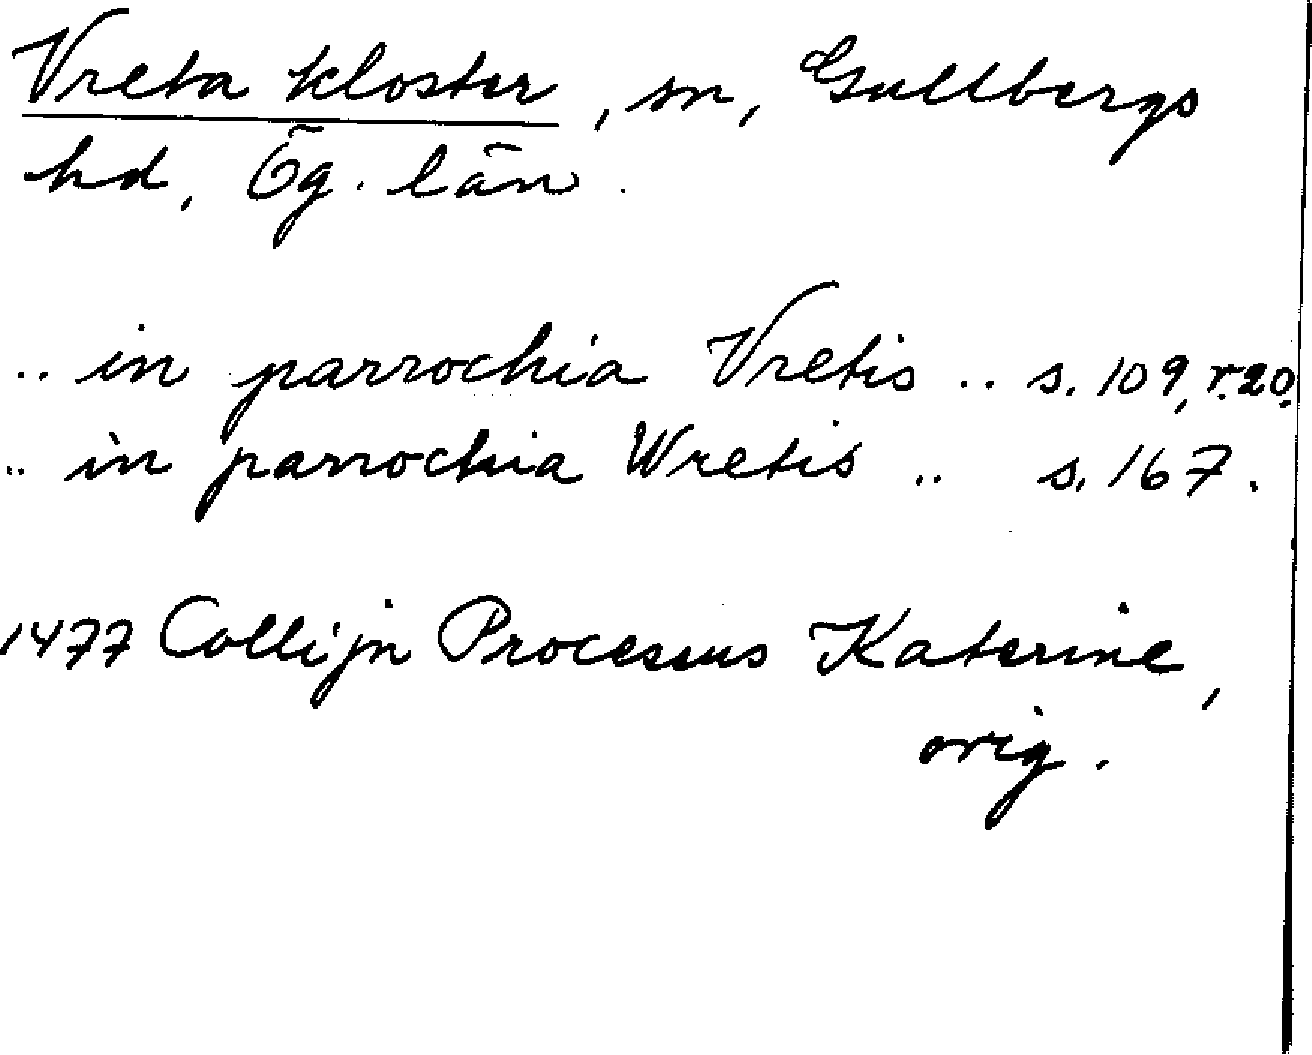 Vreta kloster, sn, Gullbergs
hd, Ög. län.
.. in parrochia Vretis .. s. 109, r. 20.
.. in parrochia Wretis .. s. 167.
1477 Collijn Processus Katerine,
orig.